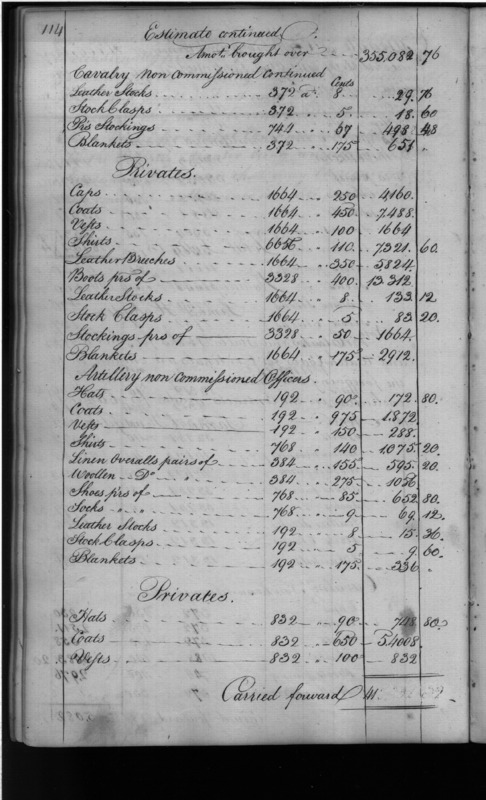 114
Estimate continued
Amot. brought over 355,082 76
Cavalry non Commissioned Continued
Cents
Leather Stocks 372 a 8 29. 76
Stock Clasps 372 5 18. 60
Prs Stockings 744 67 498. 48
Blankets 372 175 651.
Privates.
Caps 1664 250 4160.
Coats 1664 450 7488.
Vests 1664 100 1664
Shirts 6656 110 7321. 60.
Leather Breeches 1664 350 5824.
Boots prs of 3328 400 13312.
Leather Stocks 1664 8. 133 12
Stock Clasps 1664 5 83 20.
Stockings prs of 3328 50 1664.
Blankets 1664 175 2912.
Artillery non commissioned Officers.
Hats 192 90 172 80.
Coats 192 975 1.872.
Vests 192 150 288.
Shirts 768 140 1075. 20.
Linen Overalls pairs of 384 155 595. 20
Woollen Do " " 384 275 1056
Shoes prs of 768 85 652 80
Socks " " 768 9 69. 12.
Leather Stocks 192 8 15. 36
Stock Clasps 192 5 9. 60.
Blankets 192 175 336
Privates.
Hats 832 90 748 80.
Coats 832 650 5.4008.
Vests 832 100 832
Carried forward 41